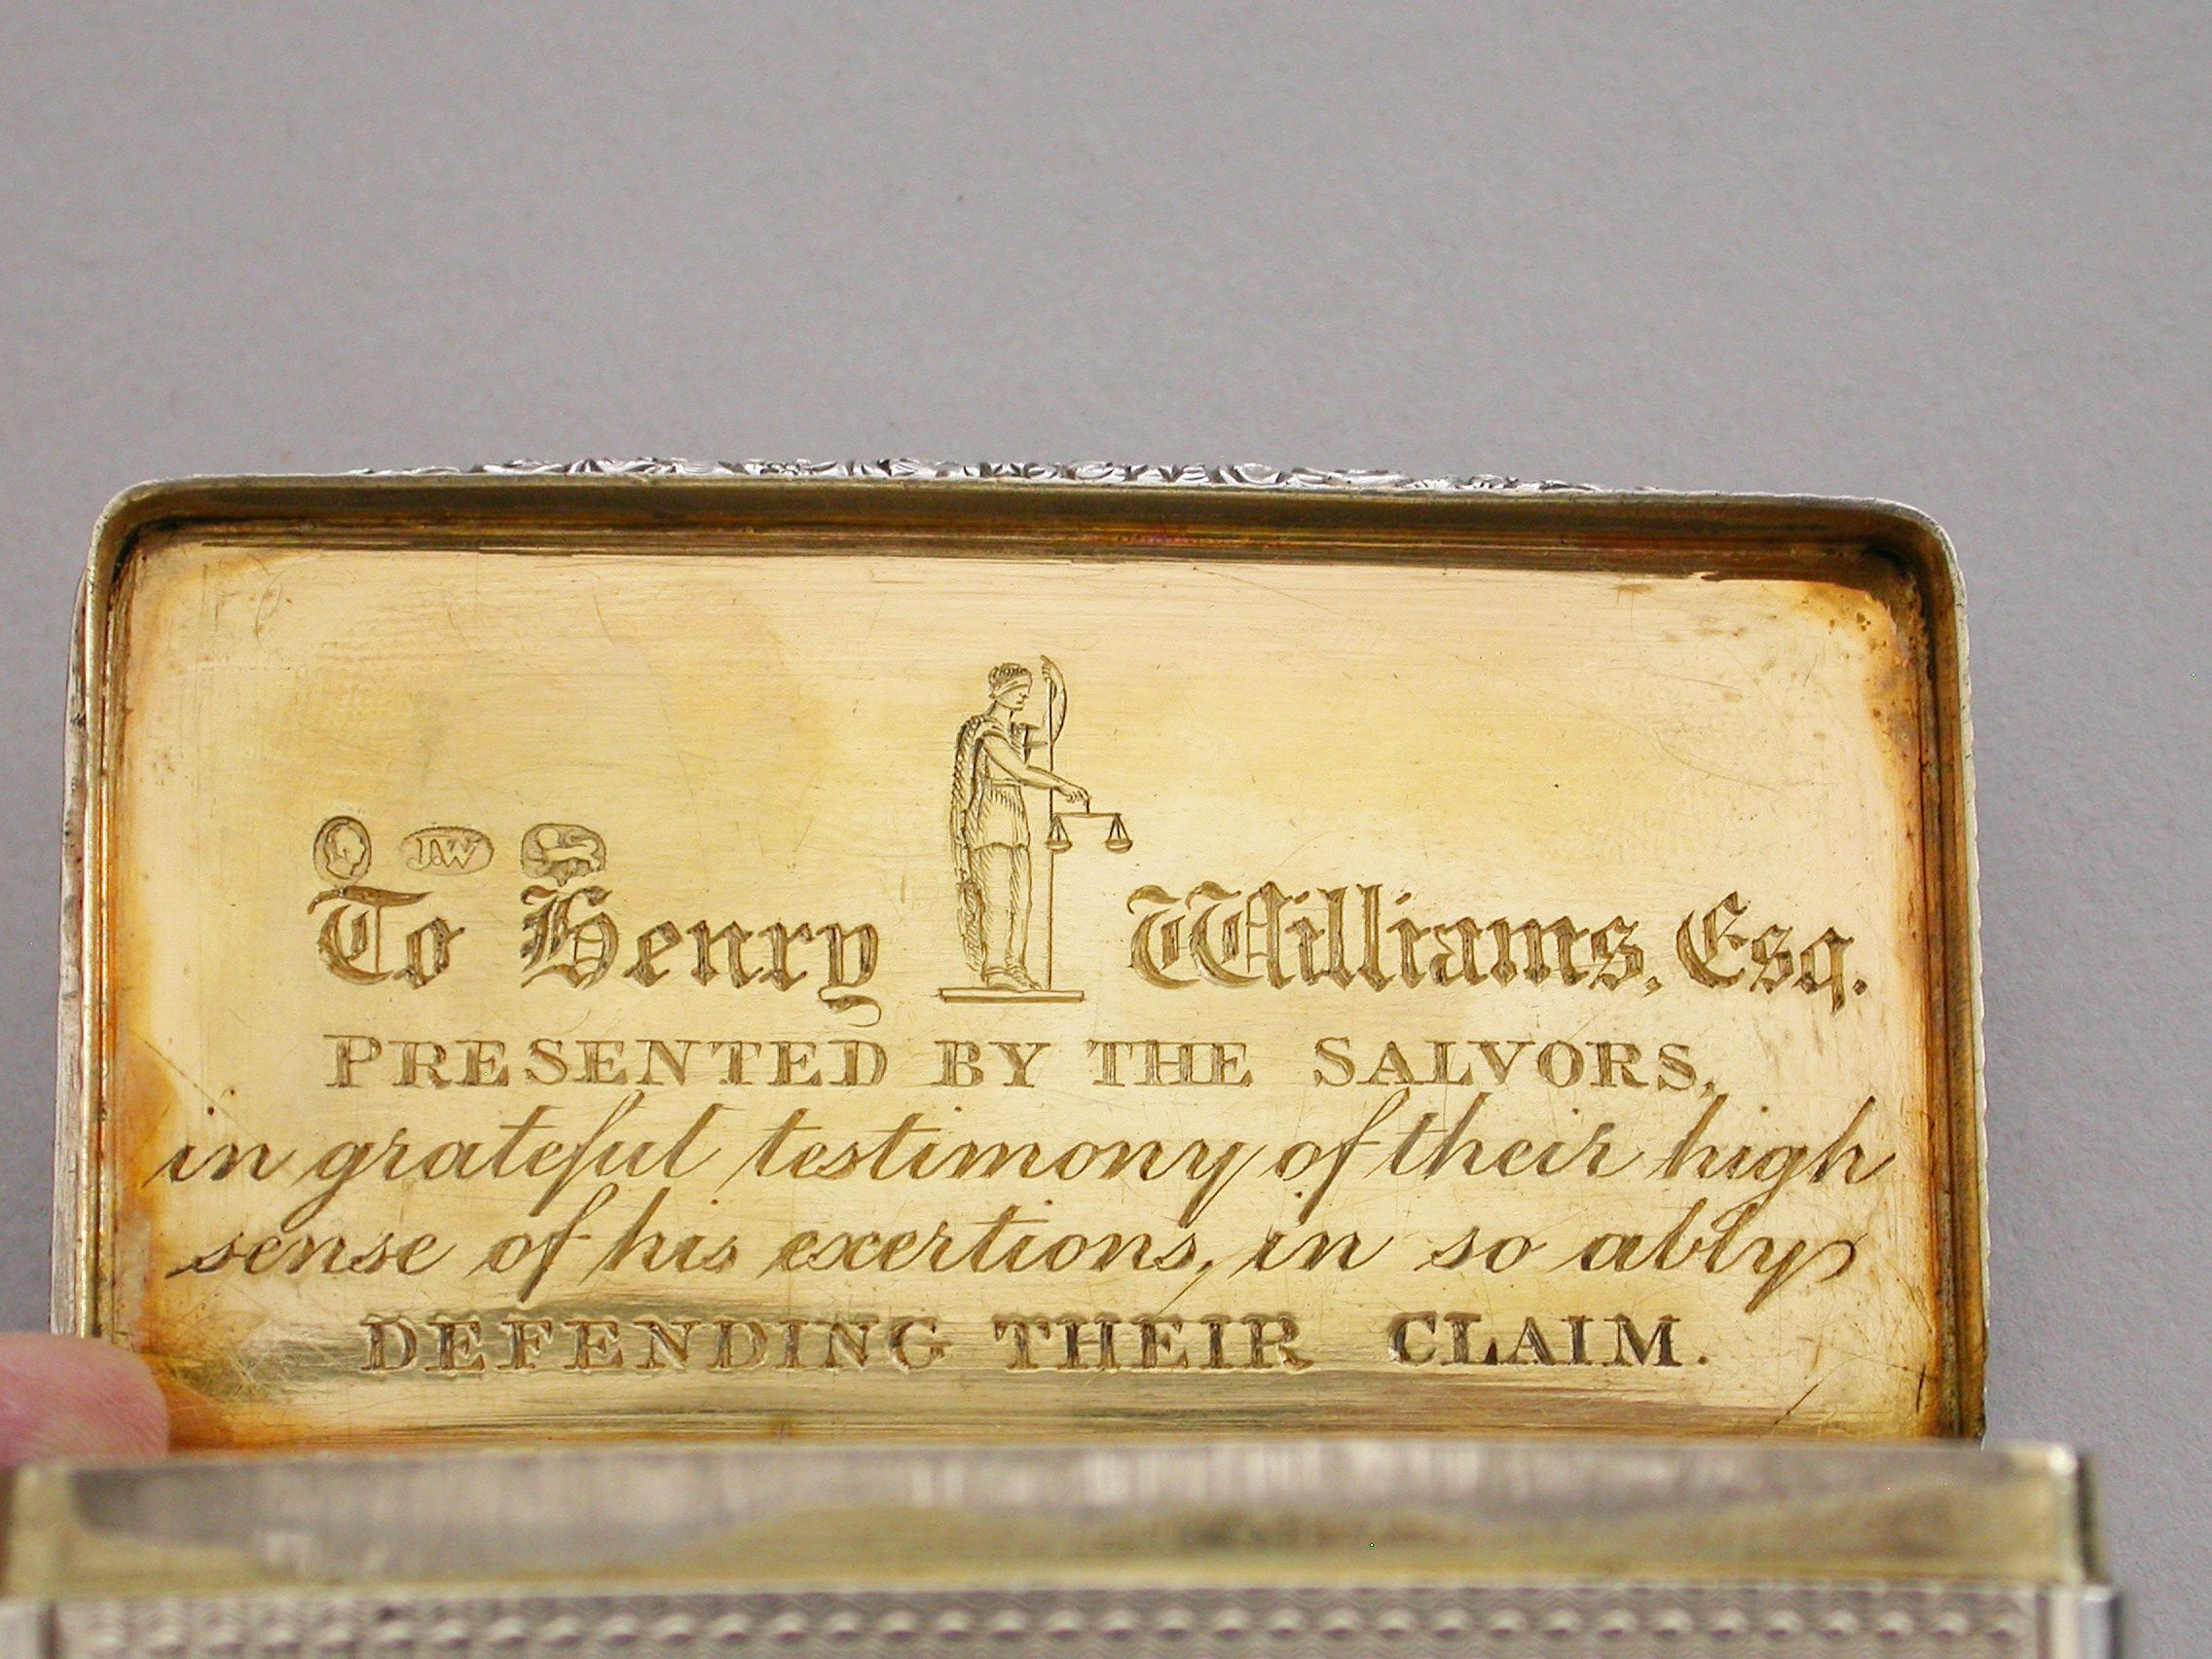 J.W
To Henry Williams, Esq.
PRESENTED BY THE SALVORS,
in grateful testimony of their high
sense of his exertions, in so ably
DEFENDING THEIR CLAIM.